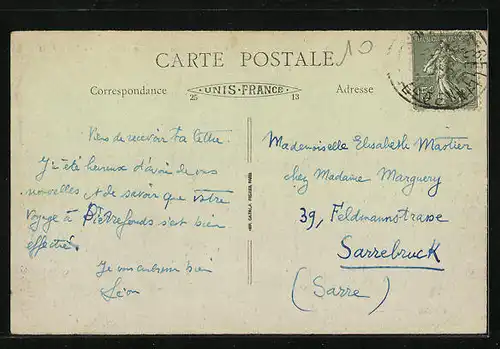 CARTE POSTALE
10
Correspondance
UNIS-FRANCE
25 13
Adresse
Viens de recevoir ta lettre.
J'ai été heureux d'avoir de vos
nouvelles et de savoir que votre
voyage à Pierrefonds s'est bien
effectué.
Je vous embrasse bien
Léon
IMP. CATALA FRERES, PARIS
Mademoiselle Elisabeth Mastier
chez Madame Marguery
39, Feldmannstrasse
Sarrebruck
(Sarre)